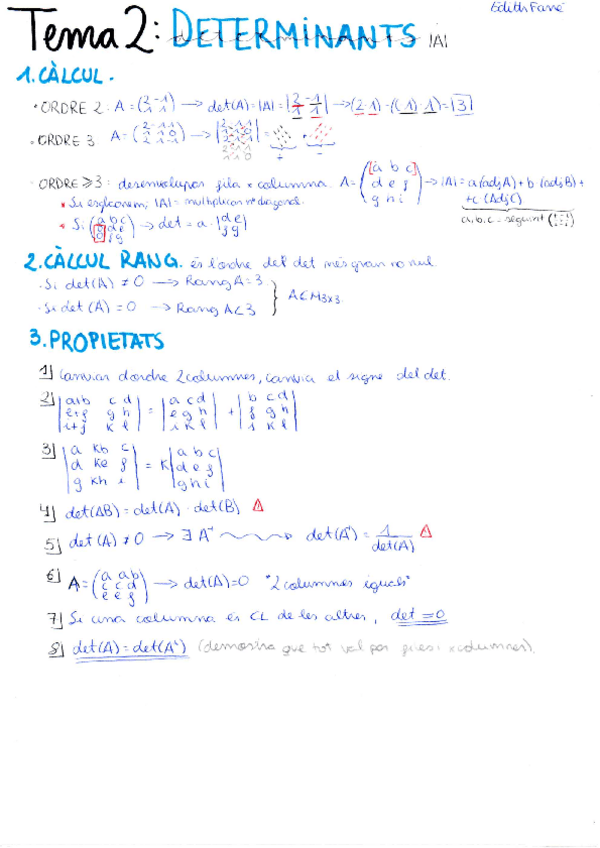 Edith Farré
Tema 2: DETERMINANTS |A|
1. CÀLCUL.
• ORDRE 2: A = (2 -1 / 1 1) → det(A) = |A| = |2 -1 / 1 1| → (2·1) - ((-1)·1) = 3
• ORDRE 3 A = → =
+ -
• ORDRE ≥3: desenvolupar fila x columna. A = (a b c / d e f / g h i) → |A| = a(adjA) + b(adjB) +
+c(AdjC)
• Si esglaonem, |A| = multiplicar nº diagonal.
a, b, c → seguint
• Si → det = a·
2. CÀLCUL RANG. és l'ordre del det més gran no nul.
· Si det(A) ≠ 0 → Rang A = 3
· Si det(A) = 0 → Rang A < 3 } A ∈ M3x3
3. PROPIETATS
1) Canviar d'ordre 2 columnes, canvia el signe del det.
2) |a+b c d / e+f g h / i+j k l| = |a c d / e g h / i k l| + |b c d / f g h / j k l|
3) |a kb c / d ke f / g kh i| = k |a b c / d e f / g h i|
4) det(AB) = det(A) · det(B) ⚠
5) det(A) ≠ 0 → ∃ A⁻¹ → det(A⁻¹) = 1/det(A) ⚠
6) A = (a a b / c c d / e e f) → det(A) = 0 "2 columnes iguals"
7) Si una columna és CL de les altres, det = 0
8) det(A) = det(Aᵗ) (demostra que tot val per files i x columnes).